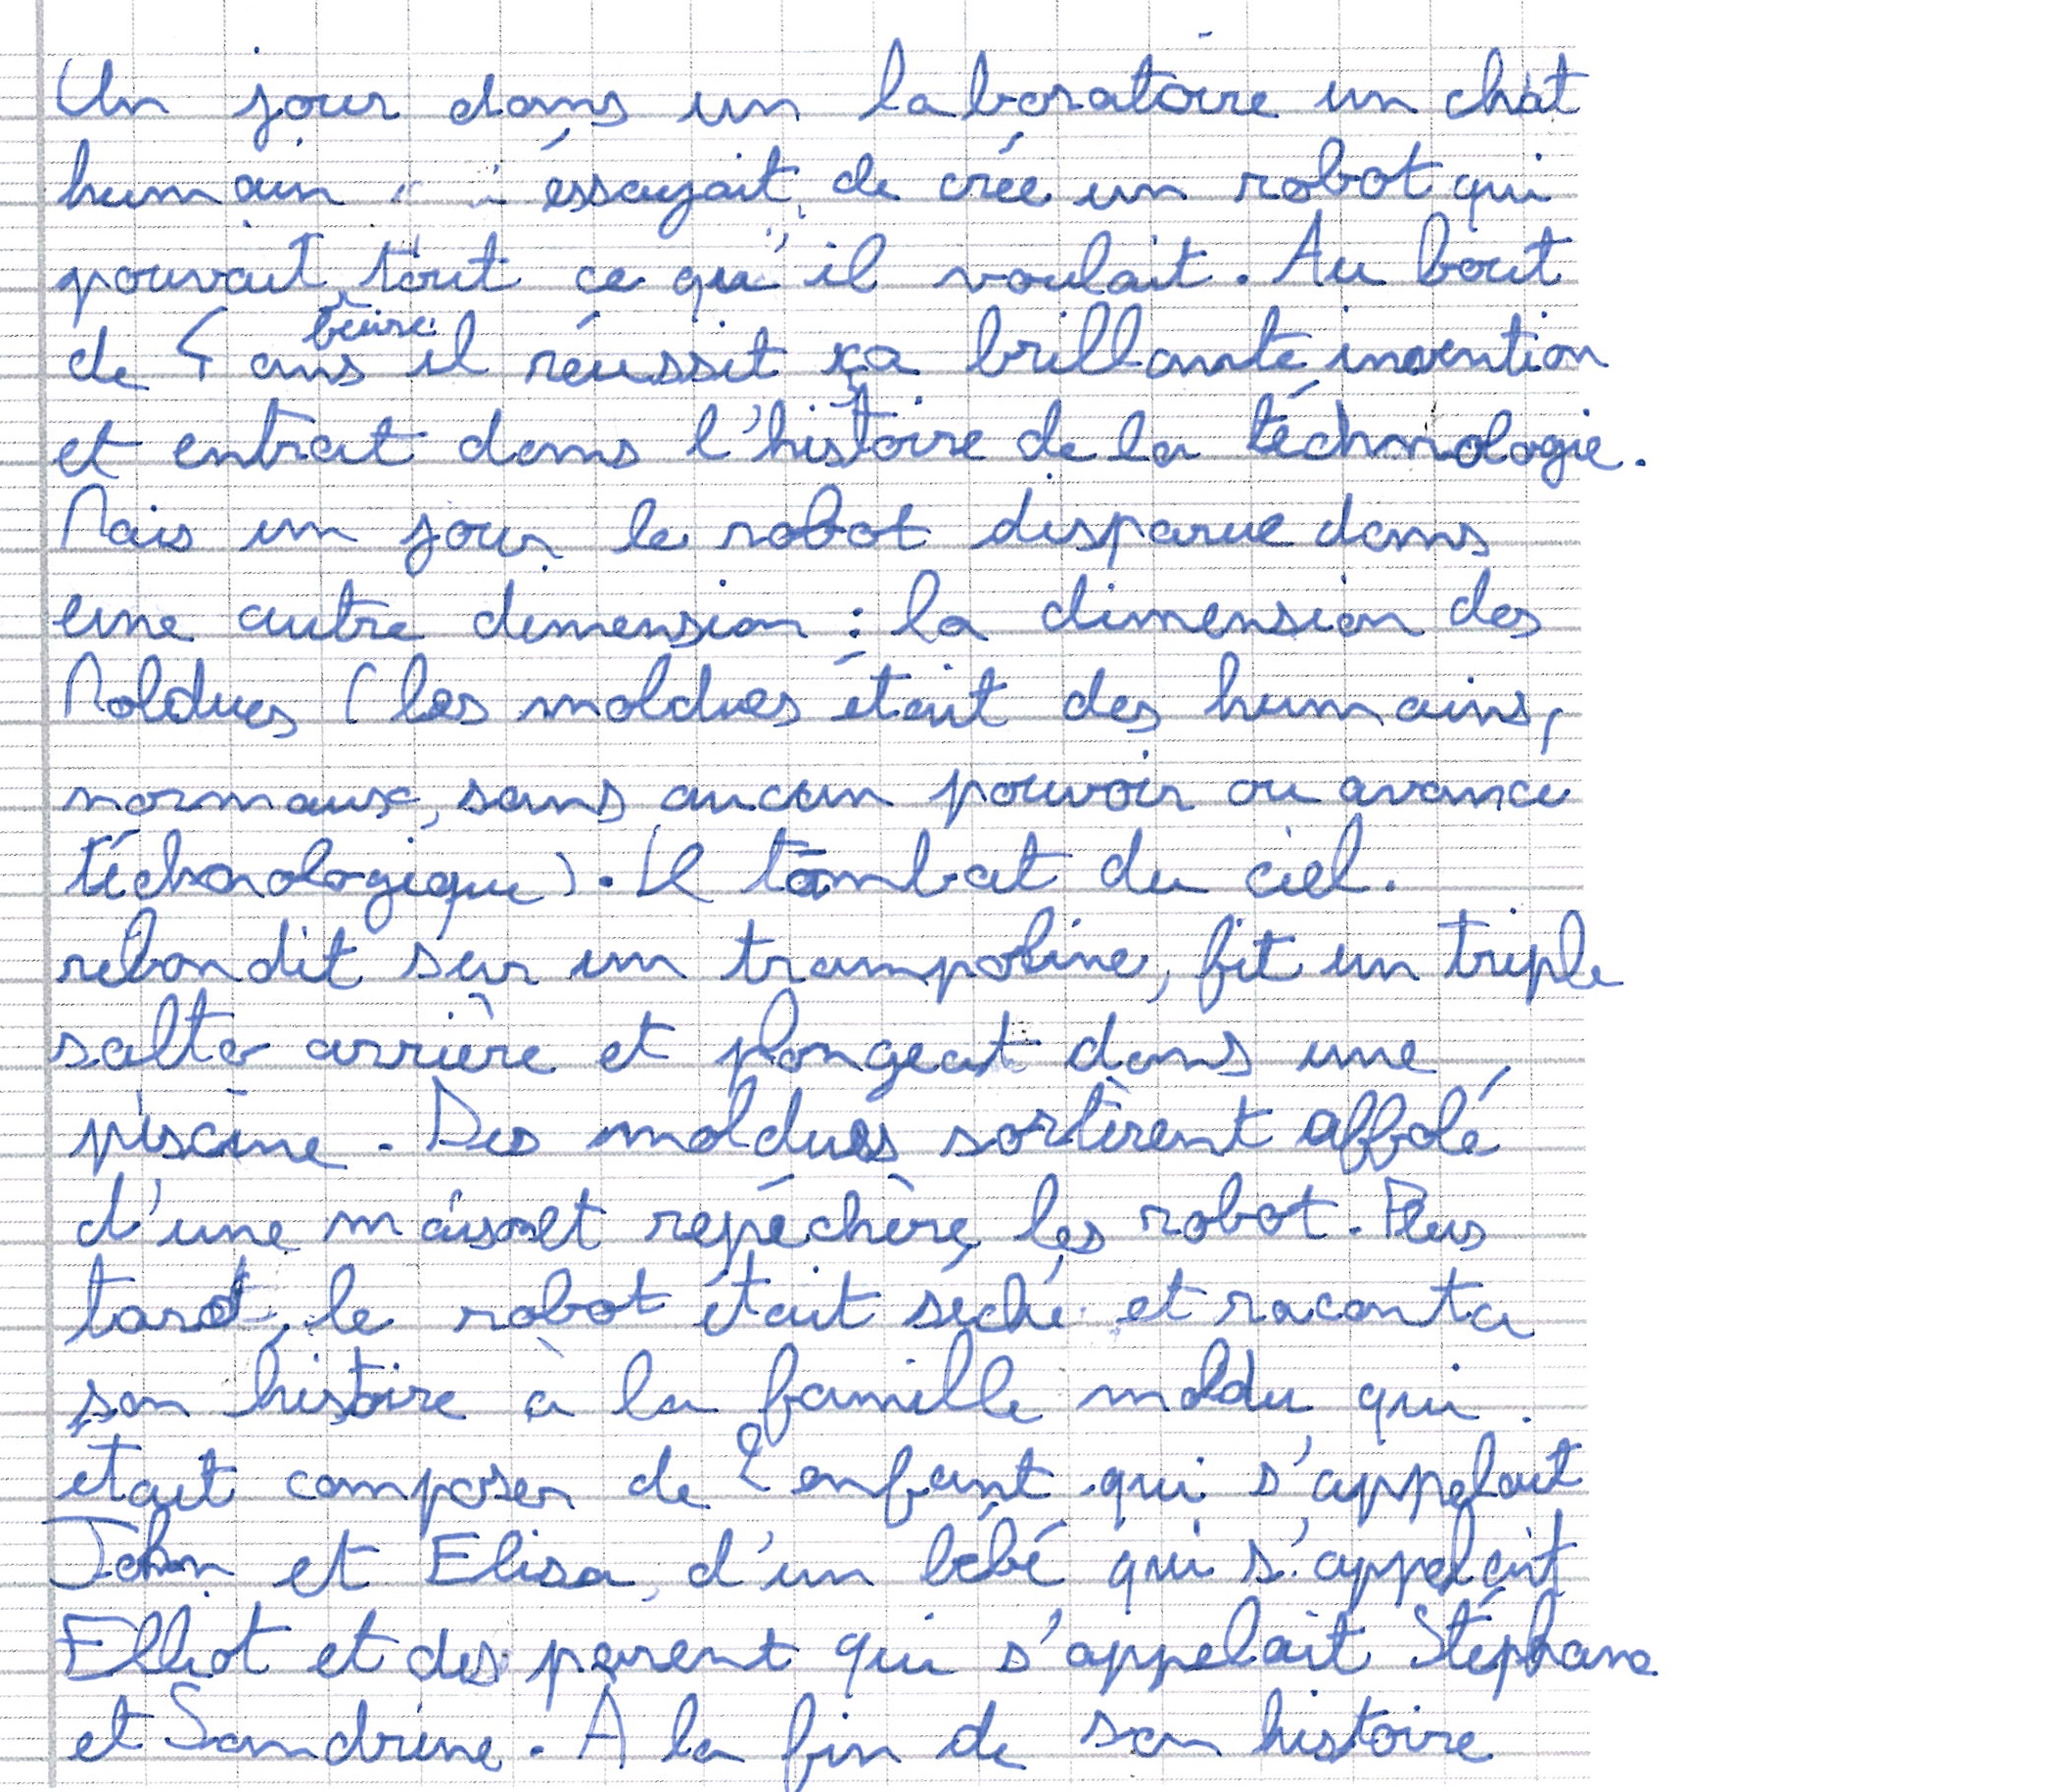 Un jour dans un laboratoire un chat
humain éssayait de crée un robot qui
pouvait faire tout ce qu'il voulait. Au bout
de 5 ans il réussit ça brillante invention
et entrat dans l'histoire de la téchnologie.
Mais un jour le robot disparue dans
une autre dimension : la dimension des
Moldues (les moldues était des humains,
normaux, sans aucun pouvoir ou avance
téchnologique). Il tombat du ciel.
rebondit sur un trampoline, fit un triple
salto arrière et plongeat dans une
piscine. Des moldues sortirent affolé
d'une maison et repéchère les robot. Plus
tard, le robot était séché et raconta
son histoire à la famille moldu qui
était composer de 2 enfant qui s'appelait
John et Elisa, d'un bébé qui s'appelait
Elliot et des parent qui s'appelait Stéphane
et Sandrine. A la fin de son histoire